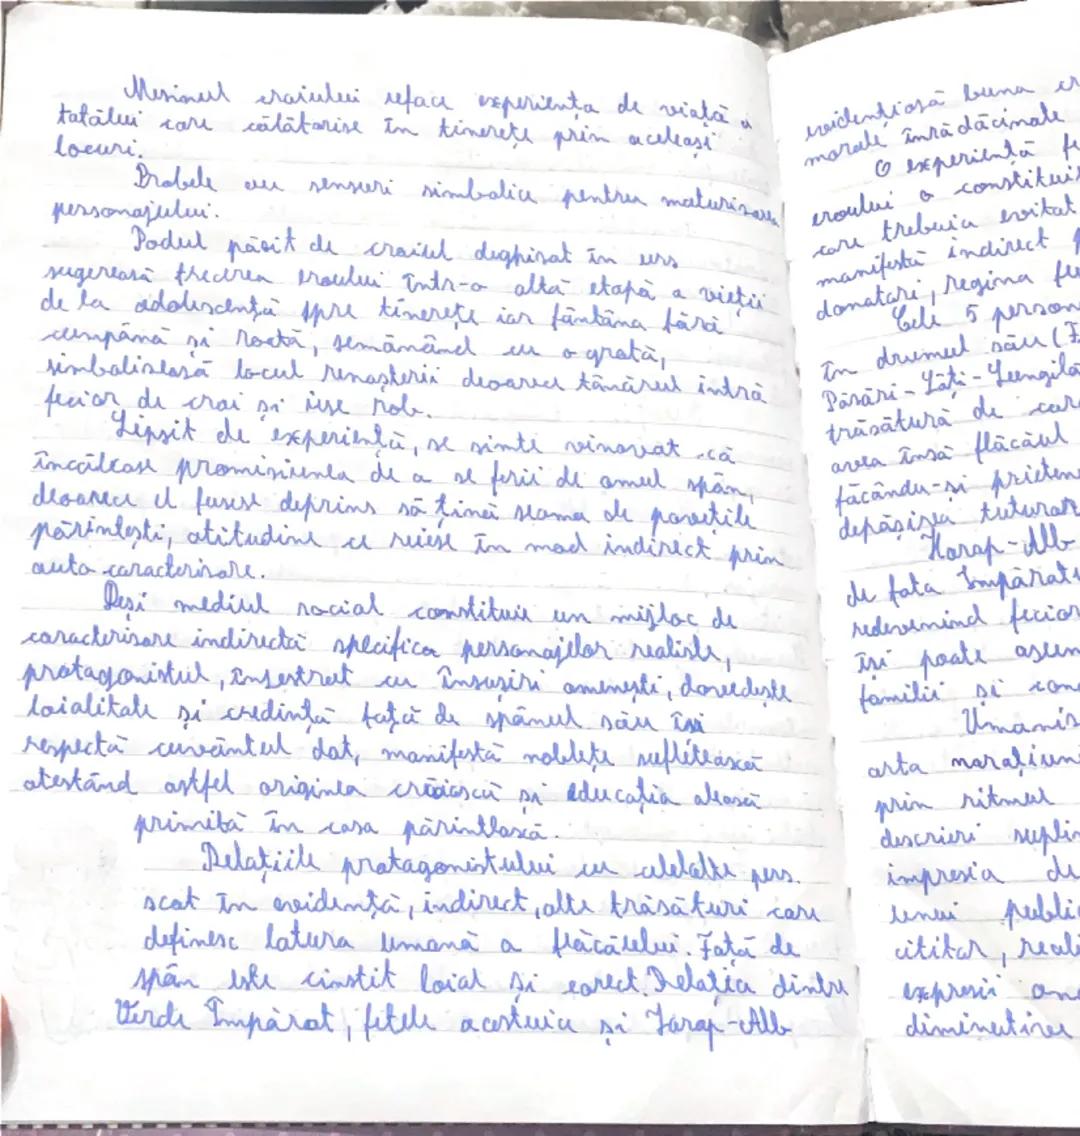 Mezinul craiului reface experiența de viață a
tatălui care călătorise în tinerețe prin aceleași
locuri.
Probele au sensuri simbolice pentru maturizarea
personajului.
Podul păzit de craiul deghizat în urs
sugerează trecerea eroului într-o altă etapă a vieții
de la adolescență spre tinerețe iar fântâna fără
cumpănă și roată, semănând cu o grotă,
simbolizează locul renașterii deoarece tânărul intră
fecior de crai și iese rob.
Lipsit de experiență, se simte vinovat că
încălcase promisiunea de a se feri de omul spân,
deoarece el fusese deprins să țină seama de povețile
părintești, atitudine ce reiese în mod indirect prin
auto caracterizare.
Deși mediul social constituie un mijloc de
caracterizare indirectă specifica personajelor realiste,
protagonistul, înzestrat cu însușiri omenești, dovedește
loialitate și credință față de spânul său își
respectă cuvântul dat, manifestă noblețe sufletească
atestând astfel originea crăiască și educația aleasă
primită în casa părintească.
Relațiile protagonistului cu celelalte pers.
scot în evidență, indirect, alte trăsături care
definesc latura umană a flăcăului. Față de
spân este cinstit loial și corect. Relația dintre
Verde Împărat, fetele acestuia și Harap-Alb
evidențiază buna
morale înrădăcinate
O experiență
eroului o
care trebuia evitat
manifestă indirect
donatori, regina
Cele 5
în drumul său
Păsări-Lăți-Lungilă
trăsătură de
avea însă flăcăul
făcându-și
depășirea tuturor
Harap-Alb
de fata
redevenind fecior
își poate
familii și
arta
prin ritmul
descrieri
impresia de
unui
cititor,
expresii